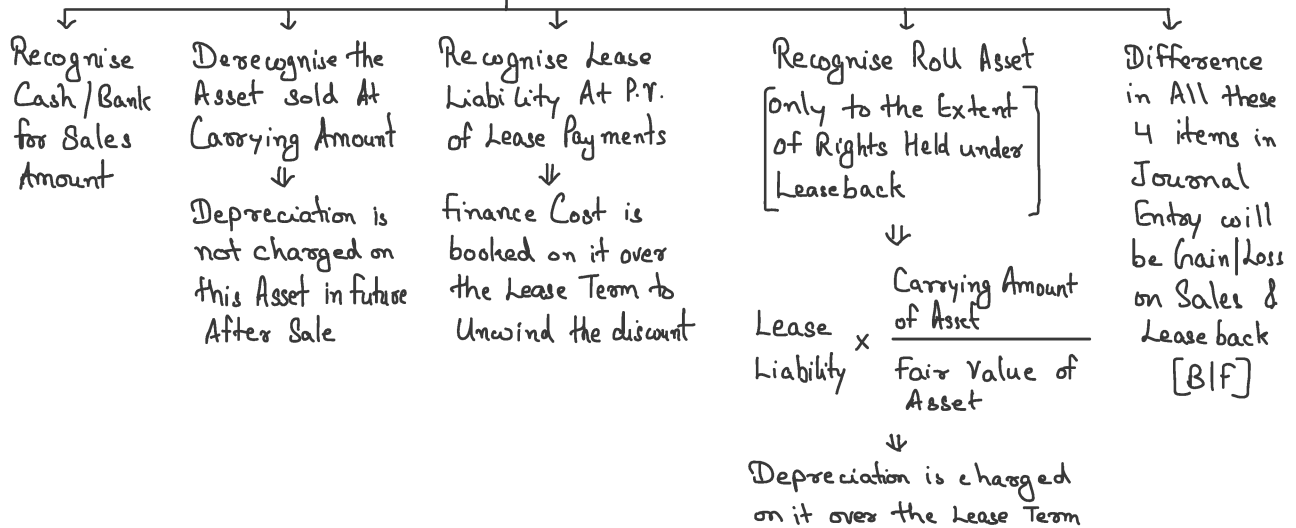 Recognise
Cash/Bank
for Sales
Amount
Derecognise the
Asset sold At
Carrying Amount
⇓
Depreciation is
not charged on
this Asset in future
After Sale
Recognise Lease
Liability At P.V.
of Lease Payments
⇓
Finance Cost is
booked on it over
the Lease Term to
Unwind the discount
Recognise RoU Asset
[only to the Extent
of Rights Held under
Leaseback]
⇓
Lease
Liability
×
Carrying Amount
of Asset
Fair Value of
Asset
⇓
Depreciation is charged
on it over the Lease Term
Difference
in All these
4 items in
Journal
Entry will
be Gain/Loss
on Sales &
Lease back
[B/F]